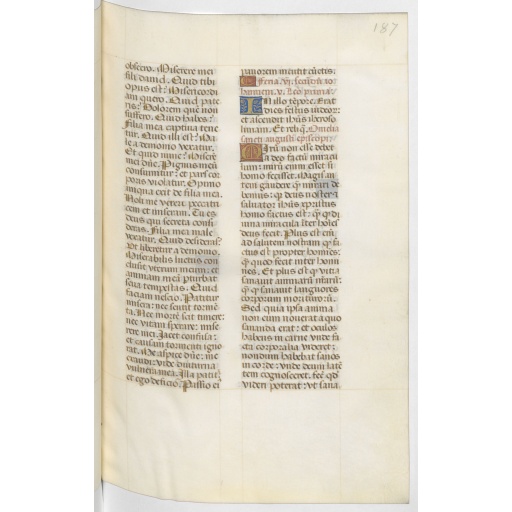 187
obsecro. Miserere mei
fili david. Quid tibi
opus est? Misericordi
am quero. Quid pate
ris? Dolorem que non
suffero. Quid habes?
Filia mea captiva tene
tur. Quid illi est? Ma
le a demonio vexatur.
Et quid inne? Misere
mei dne. Pignus meu
consumitur: et pars cor
poris violatur. Optimo
iniqua ceit de filia mea.
Noli me verere peccatri
cem et miseram. Tu es
deus qui secreta consi
deras. Filia mea male
vexatur. Quid desideras?
Ut liberetur a demonio.
Miserabilis luctus con
clusit uterum meum: et
animam mea pturbat
seva tempestas. Quid
faciam nescio. Patitur
misera: nec sentit torme
ta. Nec morte scit timere:
nec vitam sperare: mise
rere mei. Jacet confusa:
et causam tormenti igno
rat. Me aspice dne: me
exaudi: vide diuturna
vulnera mea. Illa patit
et ego deficio. Passio ei
Feria. vi. secundum io
hannem. v. leo prima.
In illo tempore. Erat
dies festus iudeor:
et ascendit ihus iheroso
limam. Et reliq. Omelia
sancti augusti episcopi.
Miru non esse debet
a deo factu miracu
lum: miru enim esset si
homo fecisset. Magis au
tem gaudere q mirari de
bemus: q deus noster a
salvator ihus xpristus
homo factus est: q q di
vina miracula iter hoies
deus fecit. Plus est eni
ad salutem nostram q fa
ctus est propter homines:
q quod fecit inter homi
nes. Et plus est q vitia
sanavit animaru nrarum:
q q sanavit languores
corporum morituroru.
Sed quia ipsa anima
non eum noverat a quo
sananda erat: et oculos
habens in carne unde fa
cta corporalia videret:
nondum habebat sanos
in corde: unde deum late
tem cognosceret. fec qd
videri poterat: ut sana